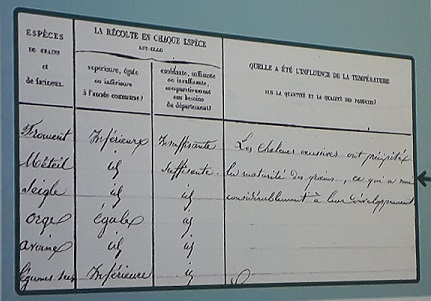 ESPÈCES
DE GRAINS
et
de farineux.
LA RÉCOLTE EN CHAQUE ESPÈCE
EST-ELLE
supérieure, égale
ou inférieure
à l'année commune?
excédante, suffisante
ou insuffisante,
comparativement
aux besoins
du département?
QUELLE A ÉTÉ L'INFLUENCE DE LA TEMPÉRATURE
SUR LA QUANTITÉ ET LA QUALITÉ DES PRODUITS?
Froment Inférieure Insuffisante Les chaleurs excessives ont précipité
Méteil id Suffisante la maturité des grains, ce qui a nui
Seigle id id considérablement à leur développement
Orge égale id
avoine id id
légumes secs Inférieure id